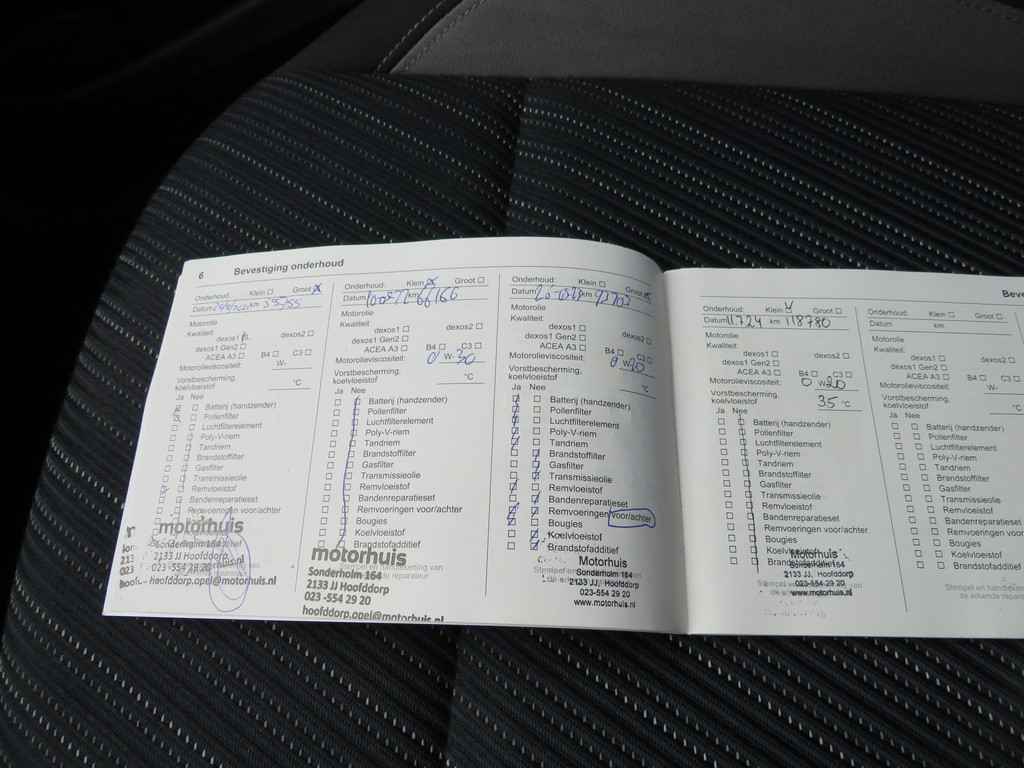 6 Bevestiging onderhoud
Onderhoud: Klein Groot
Datum km
Motorolie
Kwaliteit:
dexos1 dexos2
dexos1 Gen2
ACEA A3 B4 C3
Motorolieviscositeit: W-
Vorstbescherming,
koelvloeistof °C
Ja Nee
Batterij (handzender)
Pollenfilter
Luchtfilterelement
Poly-V-riem
Tandriem
Brandstoffilter
Gasfilter
Transmissieolie
Remvloeistof
Bandenreparatieset
Remvoeringen voor/achter
motorhuis
2133 JJ Hoofddorp
023 -554 29 20
hoofddorp.opel@motorhuis.nl
Onderhoud: Klein Groot
Datum km 66166
Motorolie
Kwaliteit:
dexos1 dexos2
dexos1 Gen2
ACEA A3 B4 C3
Motorolieviscositeit: 0 W-30
Vorstbescherming,
koelvloeistof °C
Ja Nee
Batterij (handzender)
Pollenfilter
Luchtfilterelement
Poly-V-riem
Tandriem
Brandstoffilter
Gasfilter
Transmissieolie
Remvloeistof
Bandenreparatieset
Remvoeringen voor/achter
Bougies
Koelvloeistof
Brandstofadditief
motorhuis
Sonderholm 164
2133 JJ Hoofddorp
023 -554 29 20
hoofddorp.opel@motorhuis.nl
Onderhoud: Klein Groot
Datum km
Motorolie
Kwaliteit:
dexos1 dexos2
dexos1 Gen2
ACEA A3 B4 C3
Motorolieviscositeit: 0 W-20
Vorstbescherming,
koelvloeistof °C
Ja Nee
Batterij (handzender)
Pollenfilter
Luchtfilterelement
Poly-V-riem
Tandriem
Brandstoffilter
Gasfilter
Transmissieolie
Remvloeistof
Bandenreparatieset
Remvoeringen voor/achter
Bougies
Koelvloeistof
Brandstofadditief
Motorhuis
Sonderholm 164
2133 JJ, Hoofddorp
023-554 29 20
www.motorhuis.nl
Onderhoud: Klein Groot
Datum 11724 km 118780
Motorolie
Kwaliteit:
dexos1 dexos2
dexos1 Gen2
ACEA A3 B4 C3
Motorolieviscositeit: 0 W-20
Vorstbescherming,
koelvloeistof 35 °C
Ja Nee
Batterij (handzender)
Pollenfilter
Luchtfilterelement
Poly-V-riem
Tandriem
Brandstoffilter
Gasfilter
Transmissieolie
Remvloeistof
Bandenreparatieset
Remvoeringen voor/achter
Bougies
Koelvloeistof
Brandstofadditief
Motorhuis
Sonderholm 164
2133 JJ, Hoofddorp
023-554 29 20
www.motorhuis.nl
Onderhoud: Klein Groot
Datum km
Motorolie
Kwaliteit:
dexos1 dexos2
dexos1 Gen2
ACEA A3 B4 C3
Motorolieviscositeit: W-
Vorstbescherming,
koelvloeistof °C
Ja Nee
Batterij (handzender)
Pollenfilter
Luchtfilterelement
Poly-V-riem
Tandriem
Brandstoffilter
Gasfilter
Transmissieolie
Remvloeistof
Bandenreparatieset
Remvoeringen voor/achter
Bougies
Koelvloeistof
Brandstofadditief
Stempel en handtekening